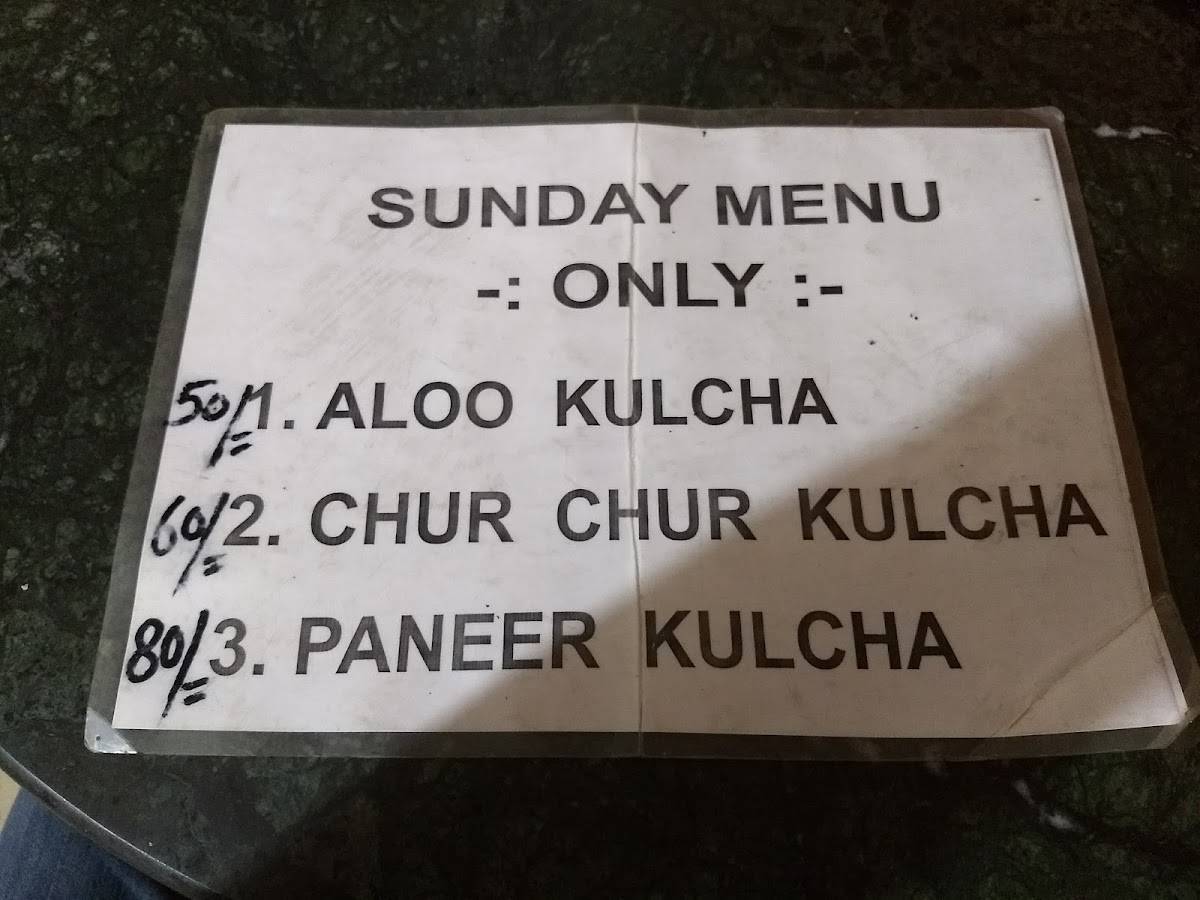 SUNDAY MENU
-: ONLY :-
50/= 1. ALOO KULCHA
60/= 2. CHUR CHUR KULCHA
80/= 3. PANEER KULCHA